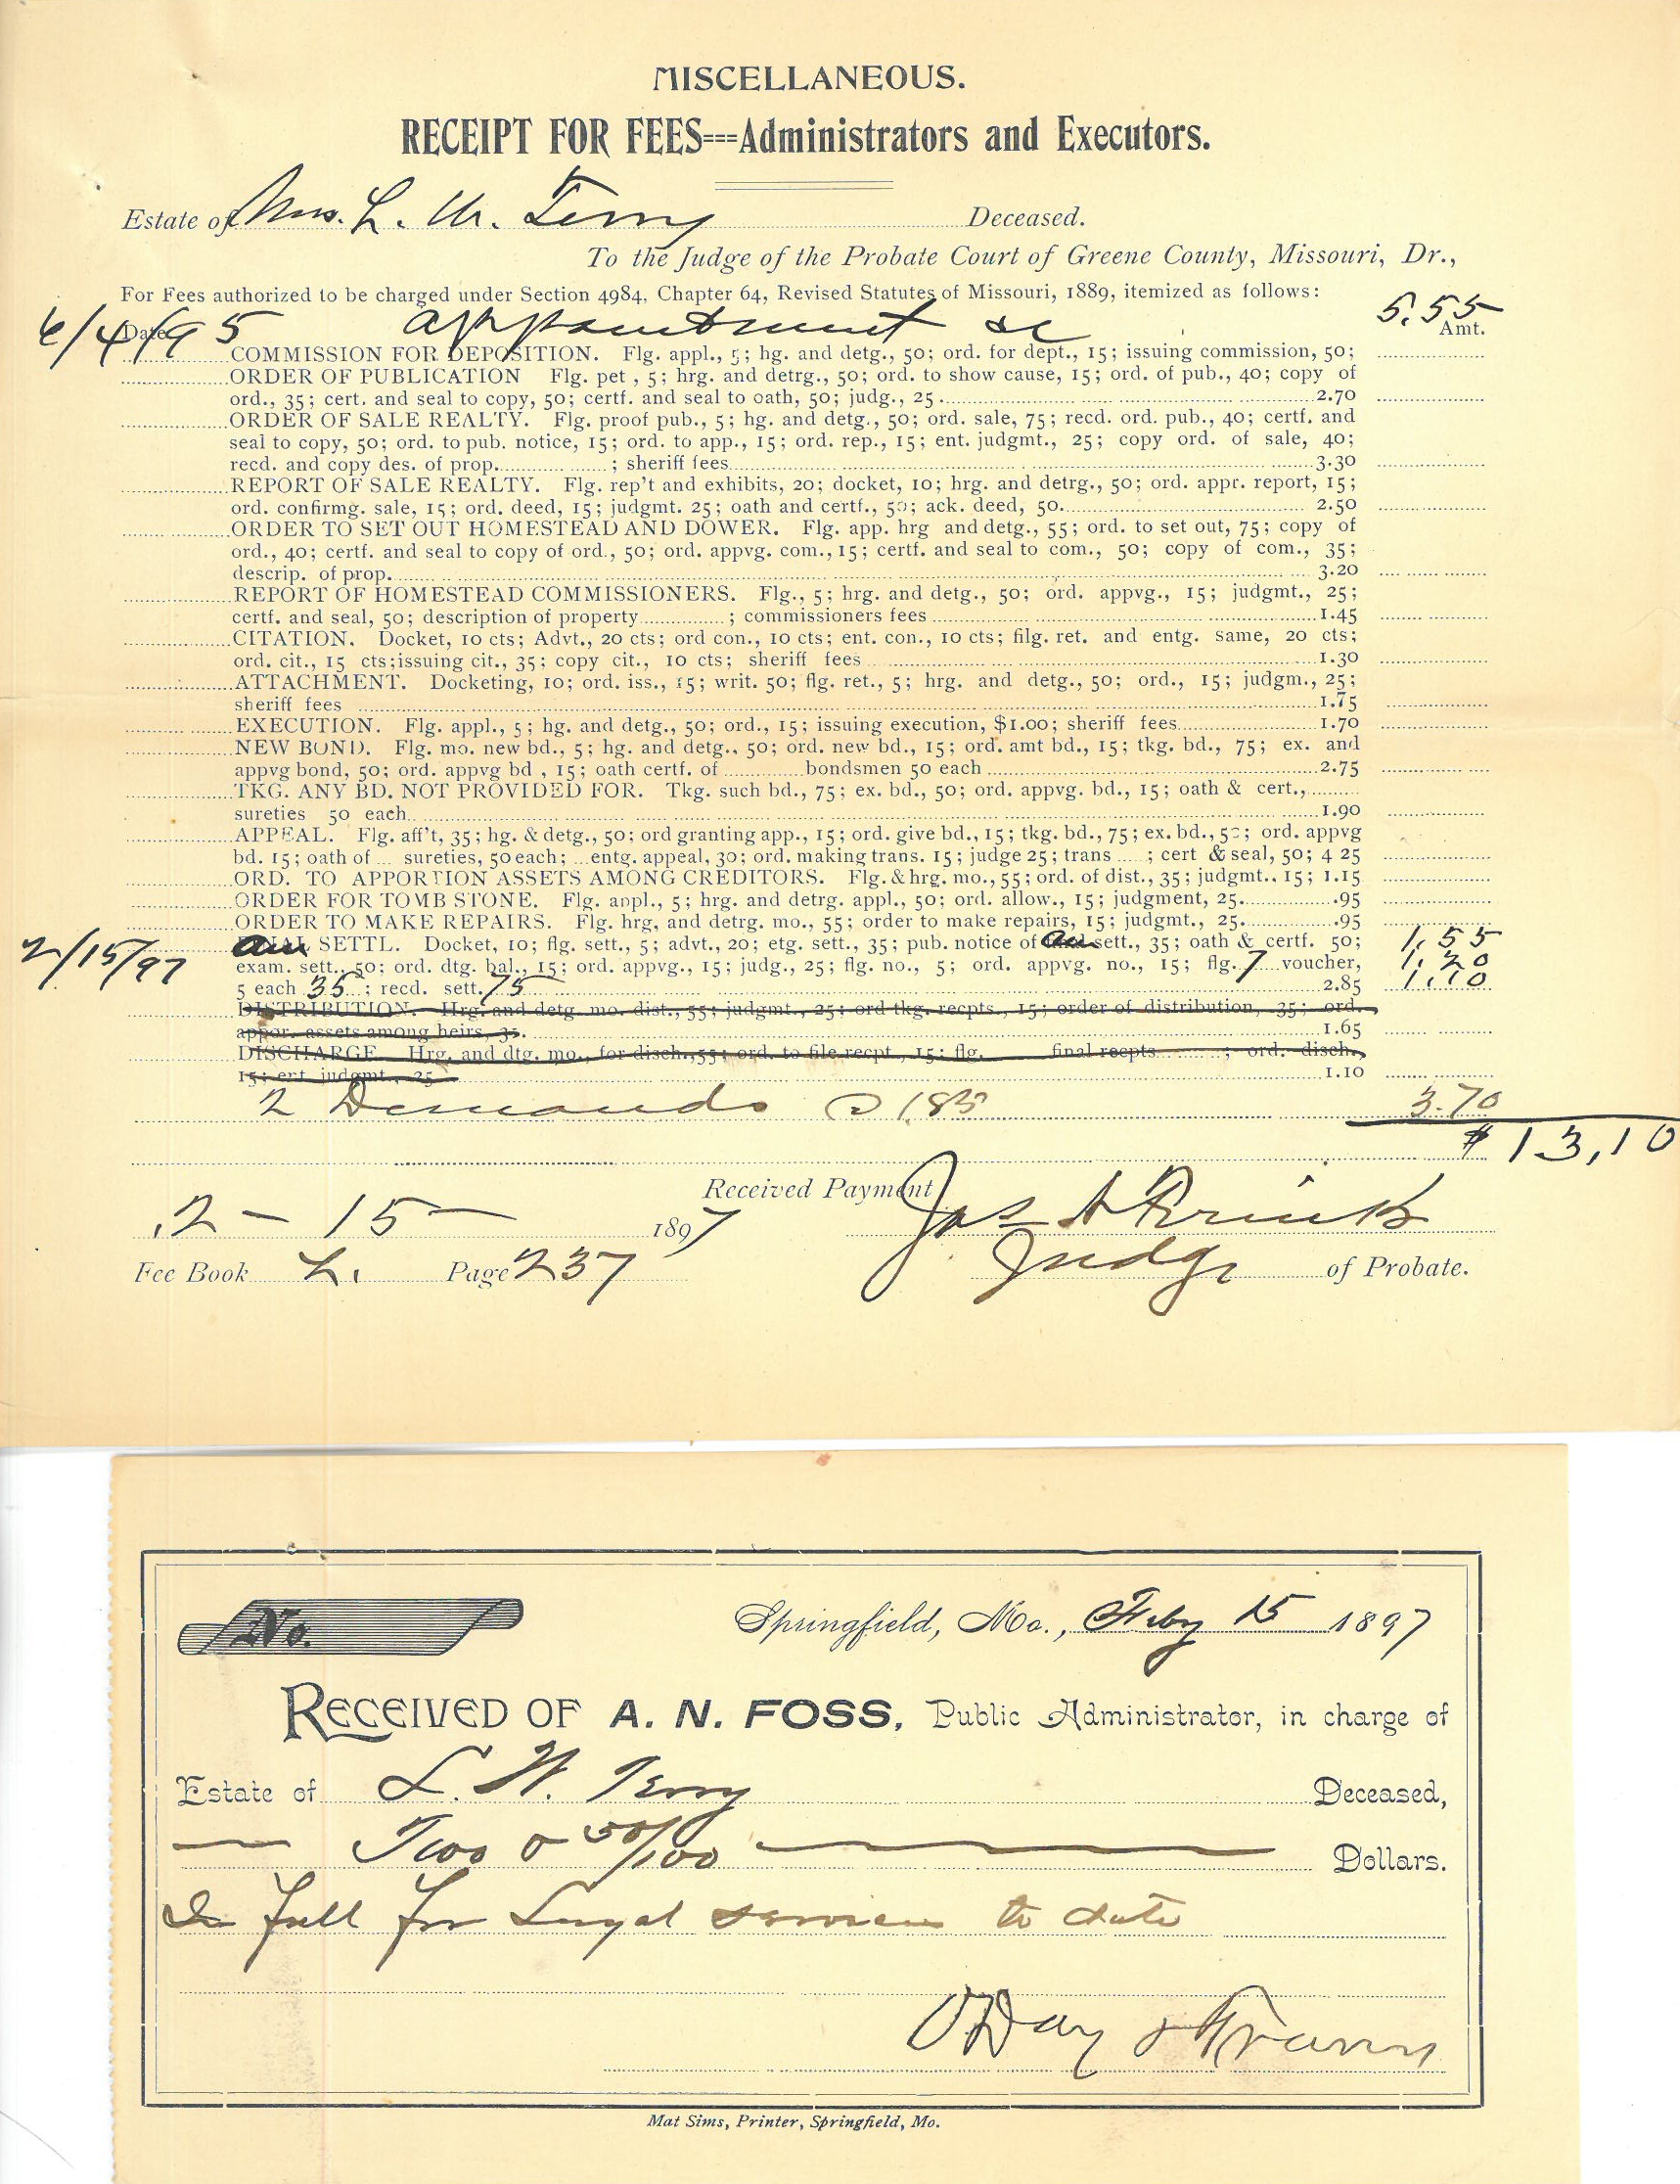 MISCELLANEOUS.
RECEIPT FOR FEES---Administrators and Executors.
Estate of Mrs. L. W. Terry Deceased.
To the Judge of the Probate Court of Greene County, Missouri, Dr.,
For Fees authorized to be charged under Section 4984, Chapter 64, Revised Statutes of Missouri, 1889, itemized as follows:
6/4/95 Date appointment &c 5.55 Amt.
COMMISSION FOR DEPOSITION. Flg. appl., 5; hg. and detg., 50; ord. for dept., 15; issuing commission, 50;
ORDER OF PUBLICATION Flg. pet , 5; hrg. and detrg., 50; ord. to show cause, 15; ord. of pub., 40; copy of
ord., 35; cert. and seal to copy, 50; certf. and seal to oath, 50; judg., 25 2.70
ORDER OF SALE REALTY. Flg. proof pub., 5; hg. and detg., 50; ord. sale, 75; recd. ord. pub., 40; certf. and
seal to copy, 50; ord. to pub. notice, 15; ord. to app., 15; ord. rep., 15; ent. judgmt., 25; copy ord. of sale, 40;
recd. and copy des. of prop. ; sheriff fees 3.30
REPORT OF SALE REALTY. Flg. rep't and exhibits, 20; docket, 10; hrg. and detrg., 50; ord. appr. report, 15;
ord. confirmg. sale, 15; ord. deed, 15; judgmt. 25; oath and certf., 50; ack. deed, 50. 2.50
ORDER TO SET OUT HOMESTEAD AND DOWER. Flg. app. hrg and detg., 55; ord. to set out, 75; copy of
ord., 40; certf. and seal to copy of ord., 50; ord. appvg. com., 15; certf. and seal to com., 50; copy of com., 35;
descrip. of prop. 3.20
REPORT OF HOMESTEAD COMMISSIONERS. Flg., 5; hrg. and detg., 50; ord. appvg., 15; judgmt., 25;
certf. and seal, 50; description of property ; commissioners fees 1.45
CITATION. Docket, 10 cts; Advt., 20 cts; ord con., 10 cts; ent. con., 10 cts; filg. ret. and entg. same, 20 cts;
ord. cit., 15 cts;issuing cit., 35; copy cit., 10 cts; sheriff fees 1.30
ATTACHMENT. Docketing, 10; ord. iss., 15; writ. 50; flg. ret., 5; hrg. and detg., 50; ord., 15; judgm., 25;
sheriff fees 1.75
EXECUTION. Flg. appl., 5; hg. and detg., 50; ord., 15; issuing execution, $1.00; sheriff fees 1.70
NEW BOND. Flg. mo. new bd., 5; hg. and detg., 50; ord. new bd., 15; ord. amt bd., 15; tkg. bd., 75; ex. and
appvg bond, 50; ord. appvg bd , 15; oath certf. of bondsmen 50 each 2.75
TKG. ANY BD. NOT PROVIDED FOR. Tkg. such bd., 75; ex. bd., 50; ord. appvg. bd., 15; oath & cert.,
sureties 50 each 1.90
APPEAL. Flg. aff't, 35; hg. & detg., 50; ord granting app., 15; ord. give bd., 15; tkg. bd., 75; ex. bd., 50; ord. appvg
bd. 15; oath of ... sureties, 50 each; ...entg. appeal, 30; ord. making trans. 15; judge 25; trans ; cert & seal, 50; 4 25
ORD. TO APPORTION ASSETS AMONG CREDITORS. Flg. & hrg. mo., 55; ord. of dist., 35; judgmt., 15; 1.15
ORDER FOR TOMB STONE. Flg. appl., 5; hrg. and detrg. appl., 50; ord. allow., 15; judgment, 25 .95
ORDER TO MAKE REPAIRS. Flg. hrg, and detrg. mo., 55; order to make repairs, 15; judgmt., 25 .95
2/15/97 SETTL. Docket, 10; flg. sett., 5; advt., 20; etg. sett., 35; pub. notice of sett., 35; oath & certf. 50; 1.55
exam. sett., 50; ord. dtg. bal., 15; ord. appvg., 15; judg., 25; flg. no., 5; ord. appvg. no., 15; flg. 7 voucher, 1.20
5 each 35; recd. sett. 75 2.85 1.10
DISTRIBUTION. Hrg. and detg. mo. dist., 55; judgmt., 25; ord tkg. recpts., 15; order of distribution, 35; ord.
appor. assets among heirs, 35. 1.65
DISCHARGE. Hrg. and dtg. mo., for disch., 55; ord. to file recpt., 15; flg. final recpts ; ord. disch.,
15; ent. judgmt., 25 1.10
2 Demands @ 185 3.70
$13,10
Received Payment
2 - 15 - 1897
Judge of Probate.
Fee Book L. Page 237
No.
Springfield, Mo., Feby 15 1897
RECEIVED OF A. N. FOSS, Public Administrator, in charge of
Estate of L. W. Terry Deceased,
Two & 50/100 Dollars.
In full for Legal services to date
O'Day &
Mat Sims, Printer, Springfield, Mo.